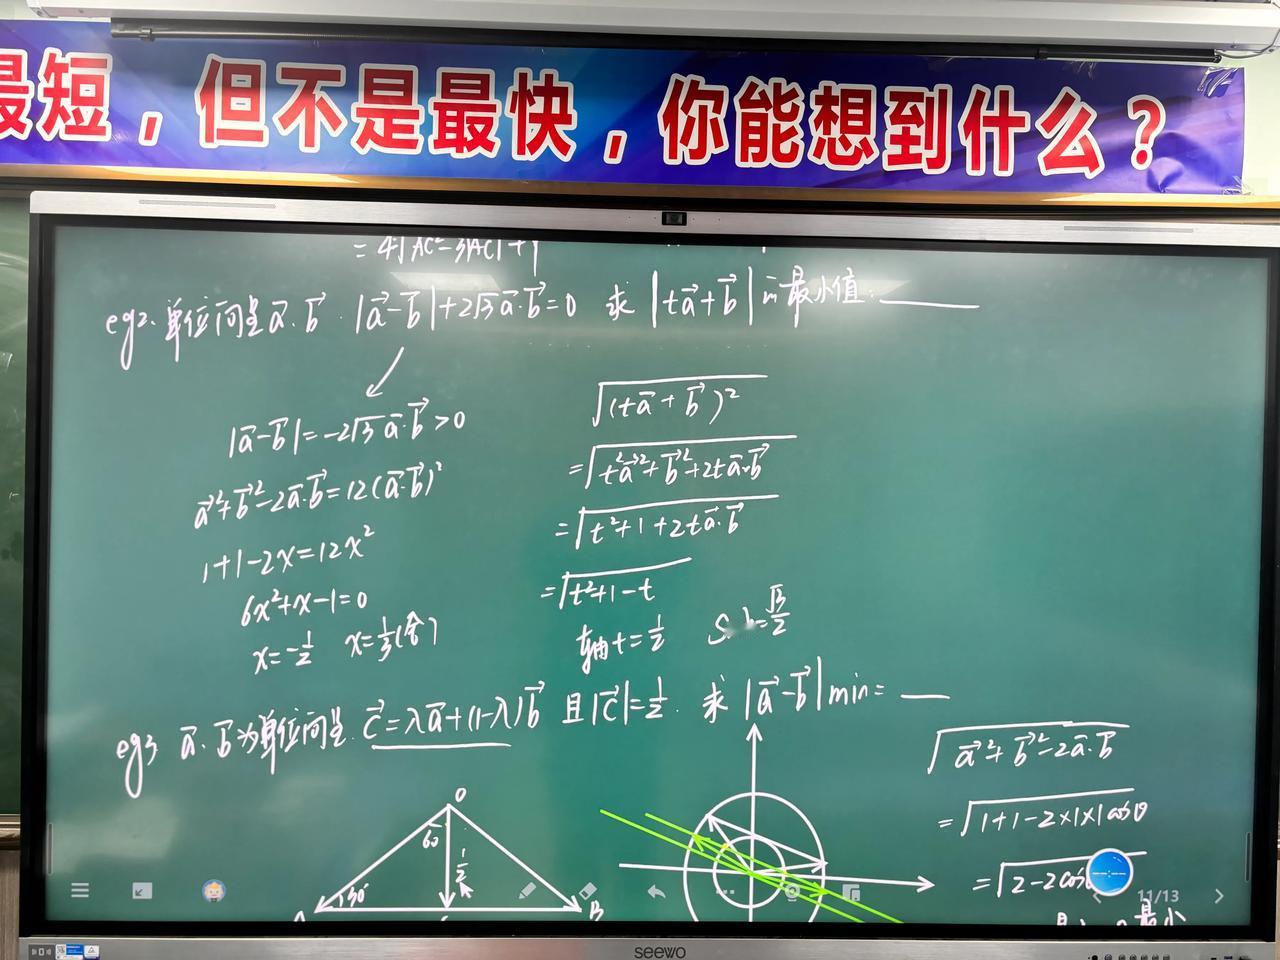 最短，但不是最快，你能想到什么？
eg2. 单位向量a⃗.b⃗. |a⃗-b⃗|+2√3a⃗·b⃗=0 求|ta⃗+b⃗|的最小值:____
|a⃗-b⃗|=-2√3a⃗·b⃗>0
a⃗²+b⃗²-2a⃗·b⃗=12(a⃗·b⃗)²
1+1-2x=12x²
6x²+x-1=0
x=-1/2 x=1/3(舍)
√(ta⃗+b⃗)²
=√t²a⃗²+b⃗²+2ta⃗·b⃗
=√t²+1+2ta⃗·b⃗
=√t²+1-t
轴t=1/2 √3/2
eg3 a⃗.b⃗为单位向量. c⃗=λa⃗+(1-λ)b⃗ 且|c⃗|=1/2. 求|a⃗-b⃗|min=__
O
60
1/2
30°
A
B
√a⃗²+b⃗²-2a⃗·b⃗
=√1+1-2×1×1cosθ
=√2-2cos
最小
11/13
seewo